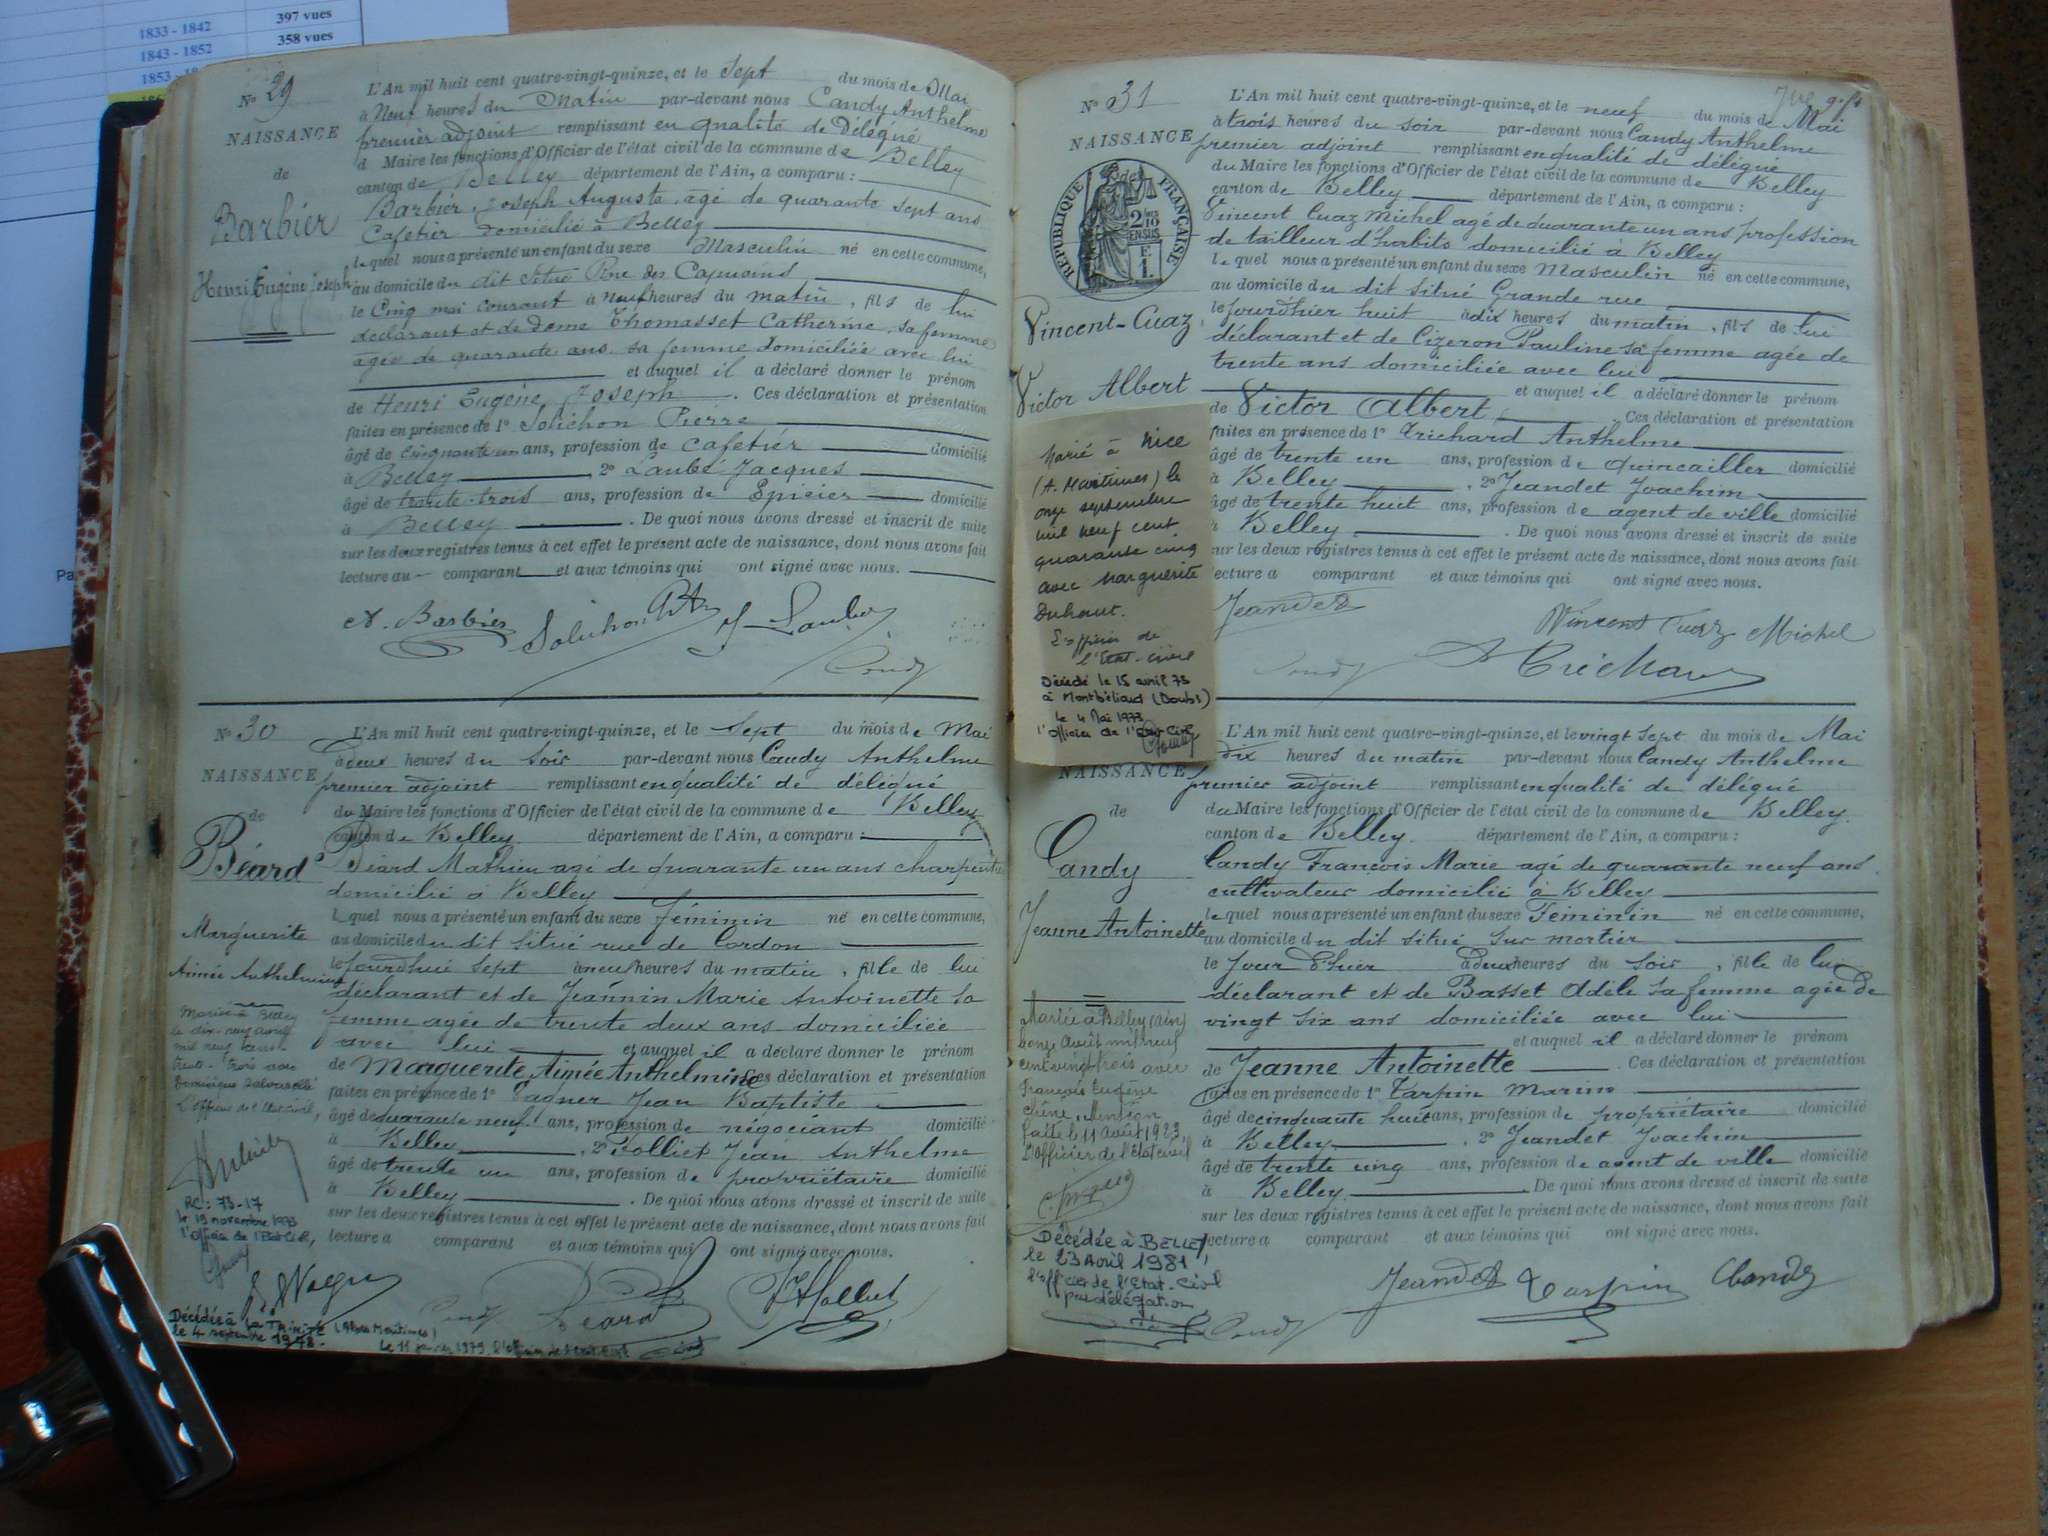 1833 - 1842
397 vues
1843 - 1852
358 vues
1853 -
Nº 29
NAISSANCE
de
Barbier
Henri Eugène Joseph
L'An mil huit cent quatre-vingt-quinze, et le Sept du mois de Mai
à Neuf heures du Matin par-devant nous Candy Anthelme
premier adjoint remplissant en qualité de délégué
d Maire les fonctions d'Officier de l'état civil de la commune de Belley
canton de Belley département de l'Ain, a comparu :
Barbier Joseph Auguste agé de quarante sept ans
Cafetier domicilié à Belley
lequel nous a présenté un enfant du sexe Masculin né en cette commune,
au domicile du dit situé Rue des Capucins
le Cinq mai courant à neuf heures du matin, fils de lui
déclarant et de dame Thomasset Catherine, sa femme
agée de quarante ans sa femme domiciliée avec lui
et auquel il a déclaré donner le prénom
de Henri Eugène Joseph. Ces déclaration et présentation
faites en présence de 1º Solichon Pierre
âgé de cinquante un ans, profession de cafetier domicilié
à Belley, 2º Laubé Jacques
âgé de trente-trois ans, profession de Epicier domicilié
à Belley. De quoi nous avons dressé et inscrit de suite
sur les deux registres tenus à cet effet le présent acte de naissance, dont nous avons fait
lecture au comparant et aux témoins qui ont signé avec nous.
A. Barbier Solichon J Laubé
Candy
Nº 30
NAISSANCE
de
Béard
Marguerite
Aimée Anthelmine
Mariée à Belley
le dix-neuf avril
mil neuf cent
trente-trois avec
Dominique
L'officier de l'état civil,
RC: 73-17
le 19 novembre 1973
l'officier de l'état civil,
L'An mil huit cent quatre-vingt-quinze, et le Sept du mois de Mai
à deux heures du soir par-devant nous Candy Anthelme
premier adjoint remplissant en qualité de délégué
du Maire les fonctions d'Officier de l'état civil de la commune de Belley
canton de Belley département de l'Ain, a comparu :
Béard Mathieu agé de quarante un ans charpentier
domicilié à Belley
lequel nous a présenté un enfant du sexe féminin né en cette commune,
au domicile du dit situé rue de Cordon
le jourdhui sept à neuf heures du matin, fille de lui
déclarant et de Jeannin Marie Antoinette sa
femme agée de trente deux ans domiciliée
avec lui et auquel il a déclaré donner le prénom
de Marguerite Aimée Anthelmine Ces déclaration et présentation
faites en présence de 1º Vagner Jean Baptiste
âgé de quarante neuf ans, profession de négociant domicilié
à Belley, 2º Jean Anthelme
âgé de trente un ans, profession de propriétaire domicilié
à Belley. De quoi nous avons dressé et inscrit de suite
sur les deux registres tenus à cet effet le présent acte de naissance, dont nous avons fait
lecture a comparant et aux témoins qui ont signé avec nous.
Candy Béard
Décédée à La Trinité (Alpes Maritimes)
le 4 septembre 1978.
Le 11 1979 l'officier de l'état civil
Nº 31
NAISSANCE
de
RÉPUBLIQUE FRANÇAISE
2/10
EN SUS
Vincent-Cuaz
Victor Albert
Marié à Nice
(A. Maritimes) le
onze septembre
mil neuf cent
quarante cinq
avec Marguerite
Duhaut.
L'officier de
l'Etat-civil
Décédé le 15 avril 73
à Montbéliard (Doubs)
le 4 Mai 1973
l'officier de l'état civil
L'An mil huit cent quatre-vingt-quinze, et le neuf du mois de Mai
à trois heures du soir par-devant nous Candy Anthelme
premier adjoint remplissant en qualité de délégué
du Maire les fonctions d'Officier de l'état civil de la commune de Belley
canton de Belley département de l'Ain, a comparu :
Vincent Cuaz Michel agé de quarante un ans profession
de tailleur d'habits domicilié à Belley
lequel nous a présenté un enfant du sexe Masculin né en cette commune,
au domicile du dit situé Grande rue
le jourdhier huit à dix heures du matin, fils de lui
déclarant et de Cizeron Pauline sa femme agée de
trente ans domiciliée avec lui
et auquel il a déclaré donner le prénom
de Victor Albert. Ces déclaration et présentation
faites en présence de 1º Trichard Anthelme
âgé de trente un ans, profession de quincailler domicilié
à Belley, 2º Jeandet Joachim
âgé de trente huit ans, profession de agent de ville domicilié
à Belley. De quoi nous avons dressé et inscrit de suite
sur les deux registres tenus à cet effet le présent acte de naissance, dont nous avons fait
lecture a comparant et aux témoins qui ont signé avec nous.
Jeandet Vincent Cuaz Michel
Candy
NAISSANCE
de
Candy
Jeanne Antoinette
Mariée à Belley (Ain)
onze Août mil neuf
cent vingt trois avec
François Eugène
Chêne, Mention
faite le 11 Août 1923,
L'Officier de l'état civil
Décédée à BELLEY
le 23 Avril 1981
l'officier de l'Etat-Civil
par délégation
L'An mil huit cent quatre-vingt-quinze, et le vingt sept du mois de Mai
dix heures du matin par-devant nous Candy Anthelme
premier adjoint remplissant en qualité de délégué
du Maire les fonctions d'Officier de l'état civil de la commune de Belley.
canton de Belley. département de l'Ain, a comparu :
Candy François Marie agé de quarante neuf ans.
cultivateur domicilié à Belley
lequel nous a présenté un enfant du sexe Féminin né en cette commune,
au domicile du dit situé Sur mortier
le jour d'hier à deux heures du soir, fille de lui
déclarant et de Basset Adèle sa femme agée de
vingt six ans domiciliée avec lui
et auquel il a déclaré donner le prénom
de Jeanne Antoinette. Ces déclaration et présentation
faites en présence de 1º Tarpin Marin
âgé de cinquante huit ans, profession de propriétaire domicilié
à Belley, 2º Jeandet Joachim
âgé de trente cinq ans, profession de agent de ville domicilié
à Belley. De quoi nous avons dressé et inscrit de suite
sur les deux registres tenus à cet effet le présent acte de naissance, dont nous avons fait
lecture a comparant et aux témoins qui ont signé avec nous.
Jeandet Tarpin Candy
Candy